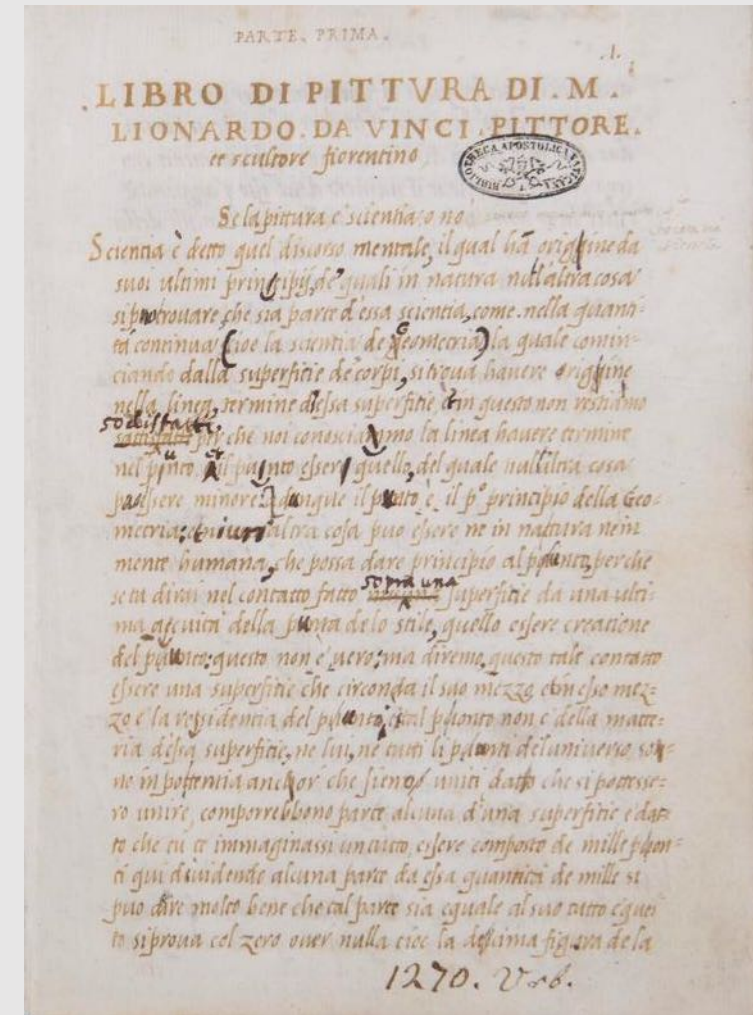 PARTE. PRIMA.
.1.
.LIBRO DI PITTVRA DI . M .
LIONARDO . DA VINCI . PITTORE .
et scultore fiorentino
BIBLIOTHECA APOSTOLICA VATICANA
Se la pittura è scientia o no
Scientia è detto quel discorso mentale, il qual hà origgine da
suoi ultimi principij, de quali in natura null'altra cosa
si può trouare, che sia parte d'essa scientia, come nella quanti-
tà continua (cioe la scientia de Geometria) la quale comin-
ciando dalla superfitie de corpi, si troua hauere origgine
nella linea, termine d'essa superfitie, et in questo non restiamo
sodisfatti,
satisfatti perche noi conosciammo la linea hauere termine
nel punto, et il punto essere quello, del quale null'altra cosa
po essere minore. adunque il punto è il p° principio della Geo=
metria; et niuna altra cosa puo essere ne in nattura ne in
mente humana, che possa dare principio al punto, perche
se tu dirai nel contatto fatto sopra una superfitie da una ulti-
ma accuità della punta de lo stile, quello essere creatione
del punto; questo non è uero; ma diremo, questo tale contatto
essere una superfitie che circonda il suo mezzo, et in esso mez=
zo è la residentia del punto, e tal punto non è della matte=
ria d'essa superfitie, ne lui, ne tutti li punti del uniuerso so=
no in pottentia anchor che sieno uniti dato che si potesse=
ro unire, comporrebbono parte alcuna d'una superfitie e dat=
to che tu te immaginassi un tutto, essere composto de mille pon=
ti qui diuidendo alcuna parte da essa quantità de mille si
puo dire molto bene che tal parte sia eguale al suo tutto e ques
to si proua col zero ouer nulla cioè la decima figura de la
1270. Urb.